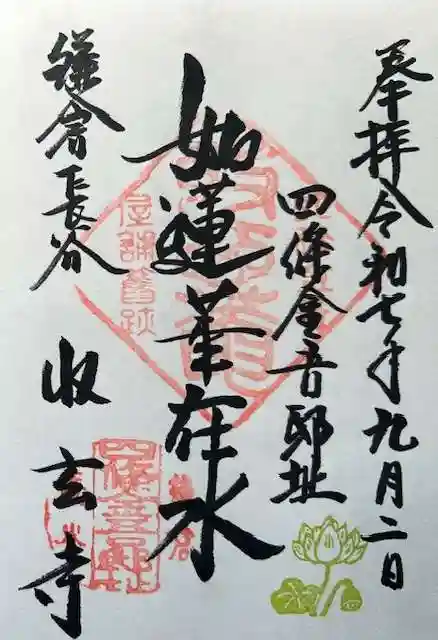 奉拝令和七年九月二日
四條金吾邸址
如蓮華在水
鎌倉長谷
収玄寺
屋舗舊跡